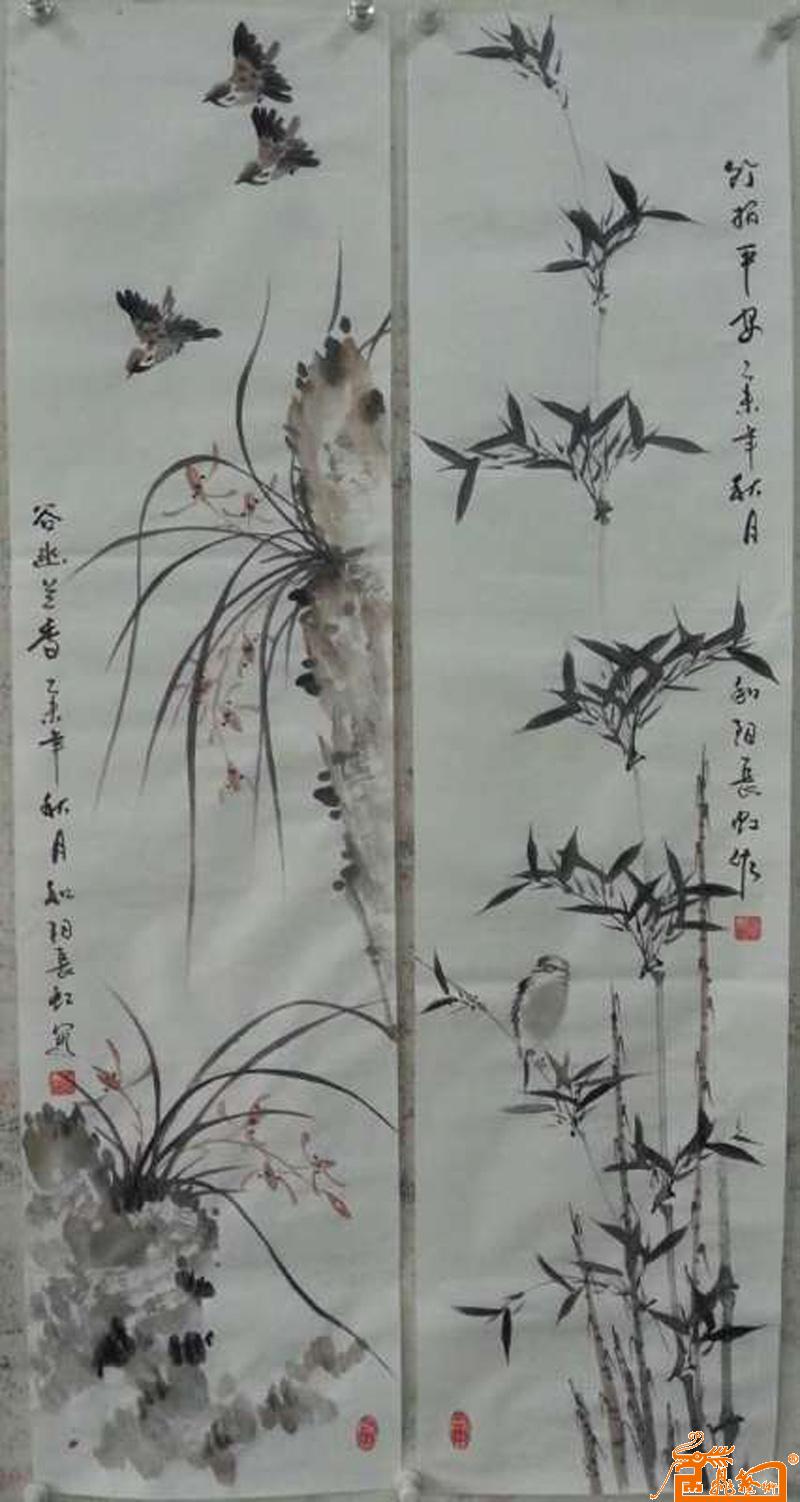 竹报平安 乙未年秋月
和阳长虹作
谷幽兰香 乙未年秋月 和阳長虹写